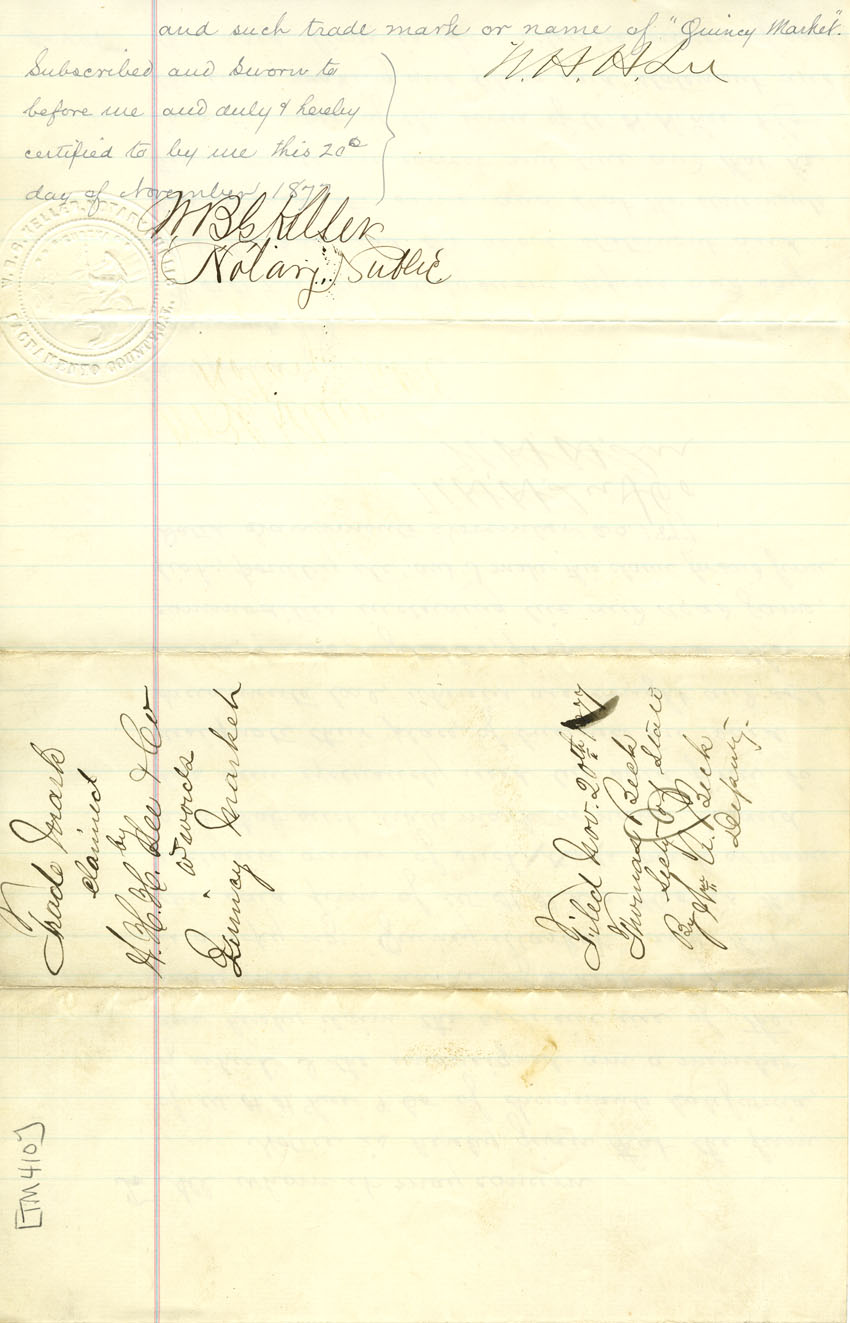 and such trade mark or name of "Quincy Market".
W. H. H. Lee
Subscribed and Sworn to
before me and duly & hereby
certified to by me this 20th
day of November 1877
Notary Public
SACRAMENTO COUNTY
Trade Mark
claimed
by
W. H. H. Lee & Co
words
Quincy Market
Filed Nov. 20th 1877
Thomas Beck
Secty of State
By Wm Beck
Deputy.
[TM 410]